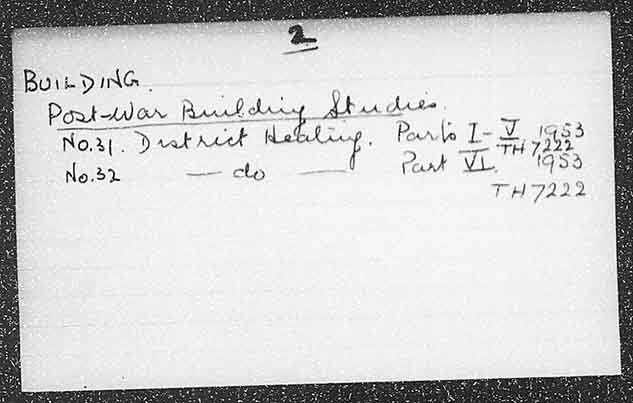 2
BUILDING.
Post-War Building Studies.
No.31. District Heating. Parts I - V 1953
TH 7222
No.32 — do — Part VI. 1953
TH 7222